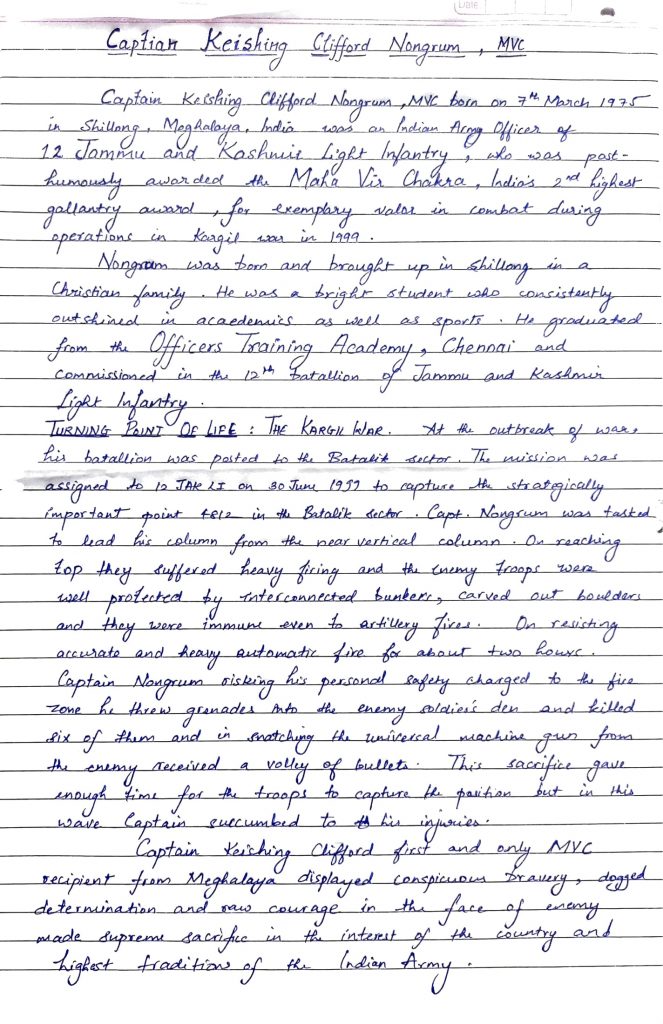 Date
Captian Keishing Clifford Nongrum, MVC
Captain Keishing Clifford Nongrum, MVC born on 7th March 1975
in Shillong, Meghalaya, India was an Indian Army Officer of
12 Jammu and Kashmir Light Infantry, who was post-
humously awarded the Maha Vir Chakra, India's 2nd highest
gallantry award, for exemplary valor in combat during
operations in Kargil war in 1999.
Nongram was born and brought up in Shillong in a
Christian family. He was a bright student who consistently
outshined in acaedemics as well as sports. He graduated
from the Officers Training Academy, Chennai and
commissioned in the 12th batallion of Jammu and Kashmir
Light Infantry.
TURNING POINT OF LIFE : THE KARGIL WAR. At the outbreak of war,
his batallion was posted to the Batalik sector. The mission was
assigned to 12 JAK LI on 30 June 1999 to capture the strategically
important point 4812 in the Batalik sector. Capt. Nongrum was tasked
to lead his column from the near vertical column. On reaching
top they suffered heavy firing and the enemy troops were
well protected by interconnected bunkers, carved out boulders
and they were immune even to artillery fires. On resisting
accurate and heavy automatic fire for about two hours.
Captain Nongrum risking his personal safety charged to the fire
zone he threw grenades into the enemy soldiers den and killed
six of them and in snatching the universal machine gun from
the enemy received a volley of bullets. This sacrifice gave
enough time for the troops to capture the position but in this
wave Captain succumbed to his injuries.
Captain Keishing Clifford first and only MVC
recipient from Meghalaya displayed conspicuous bravery, dogged
determination and raw courage in the face of enemy
made supreme sacrifice in the interest of the country and
highest traditions of the Indian Army.